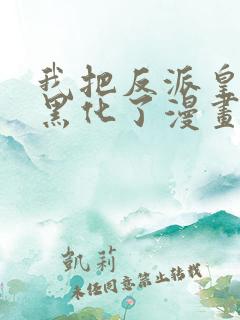 我把反派皇
黑化了漫畫
凱莉
未经同意禁止转载